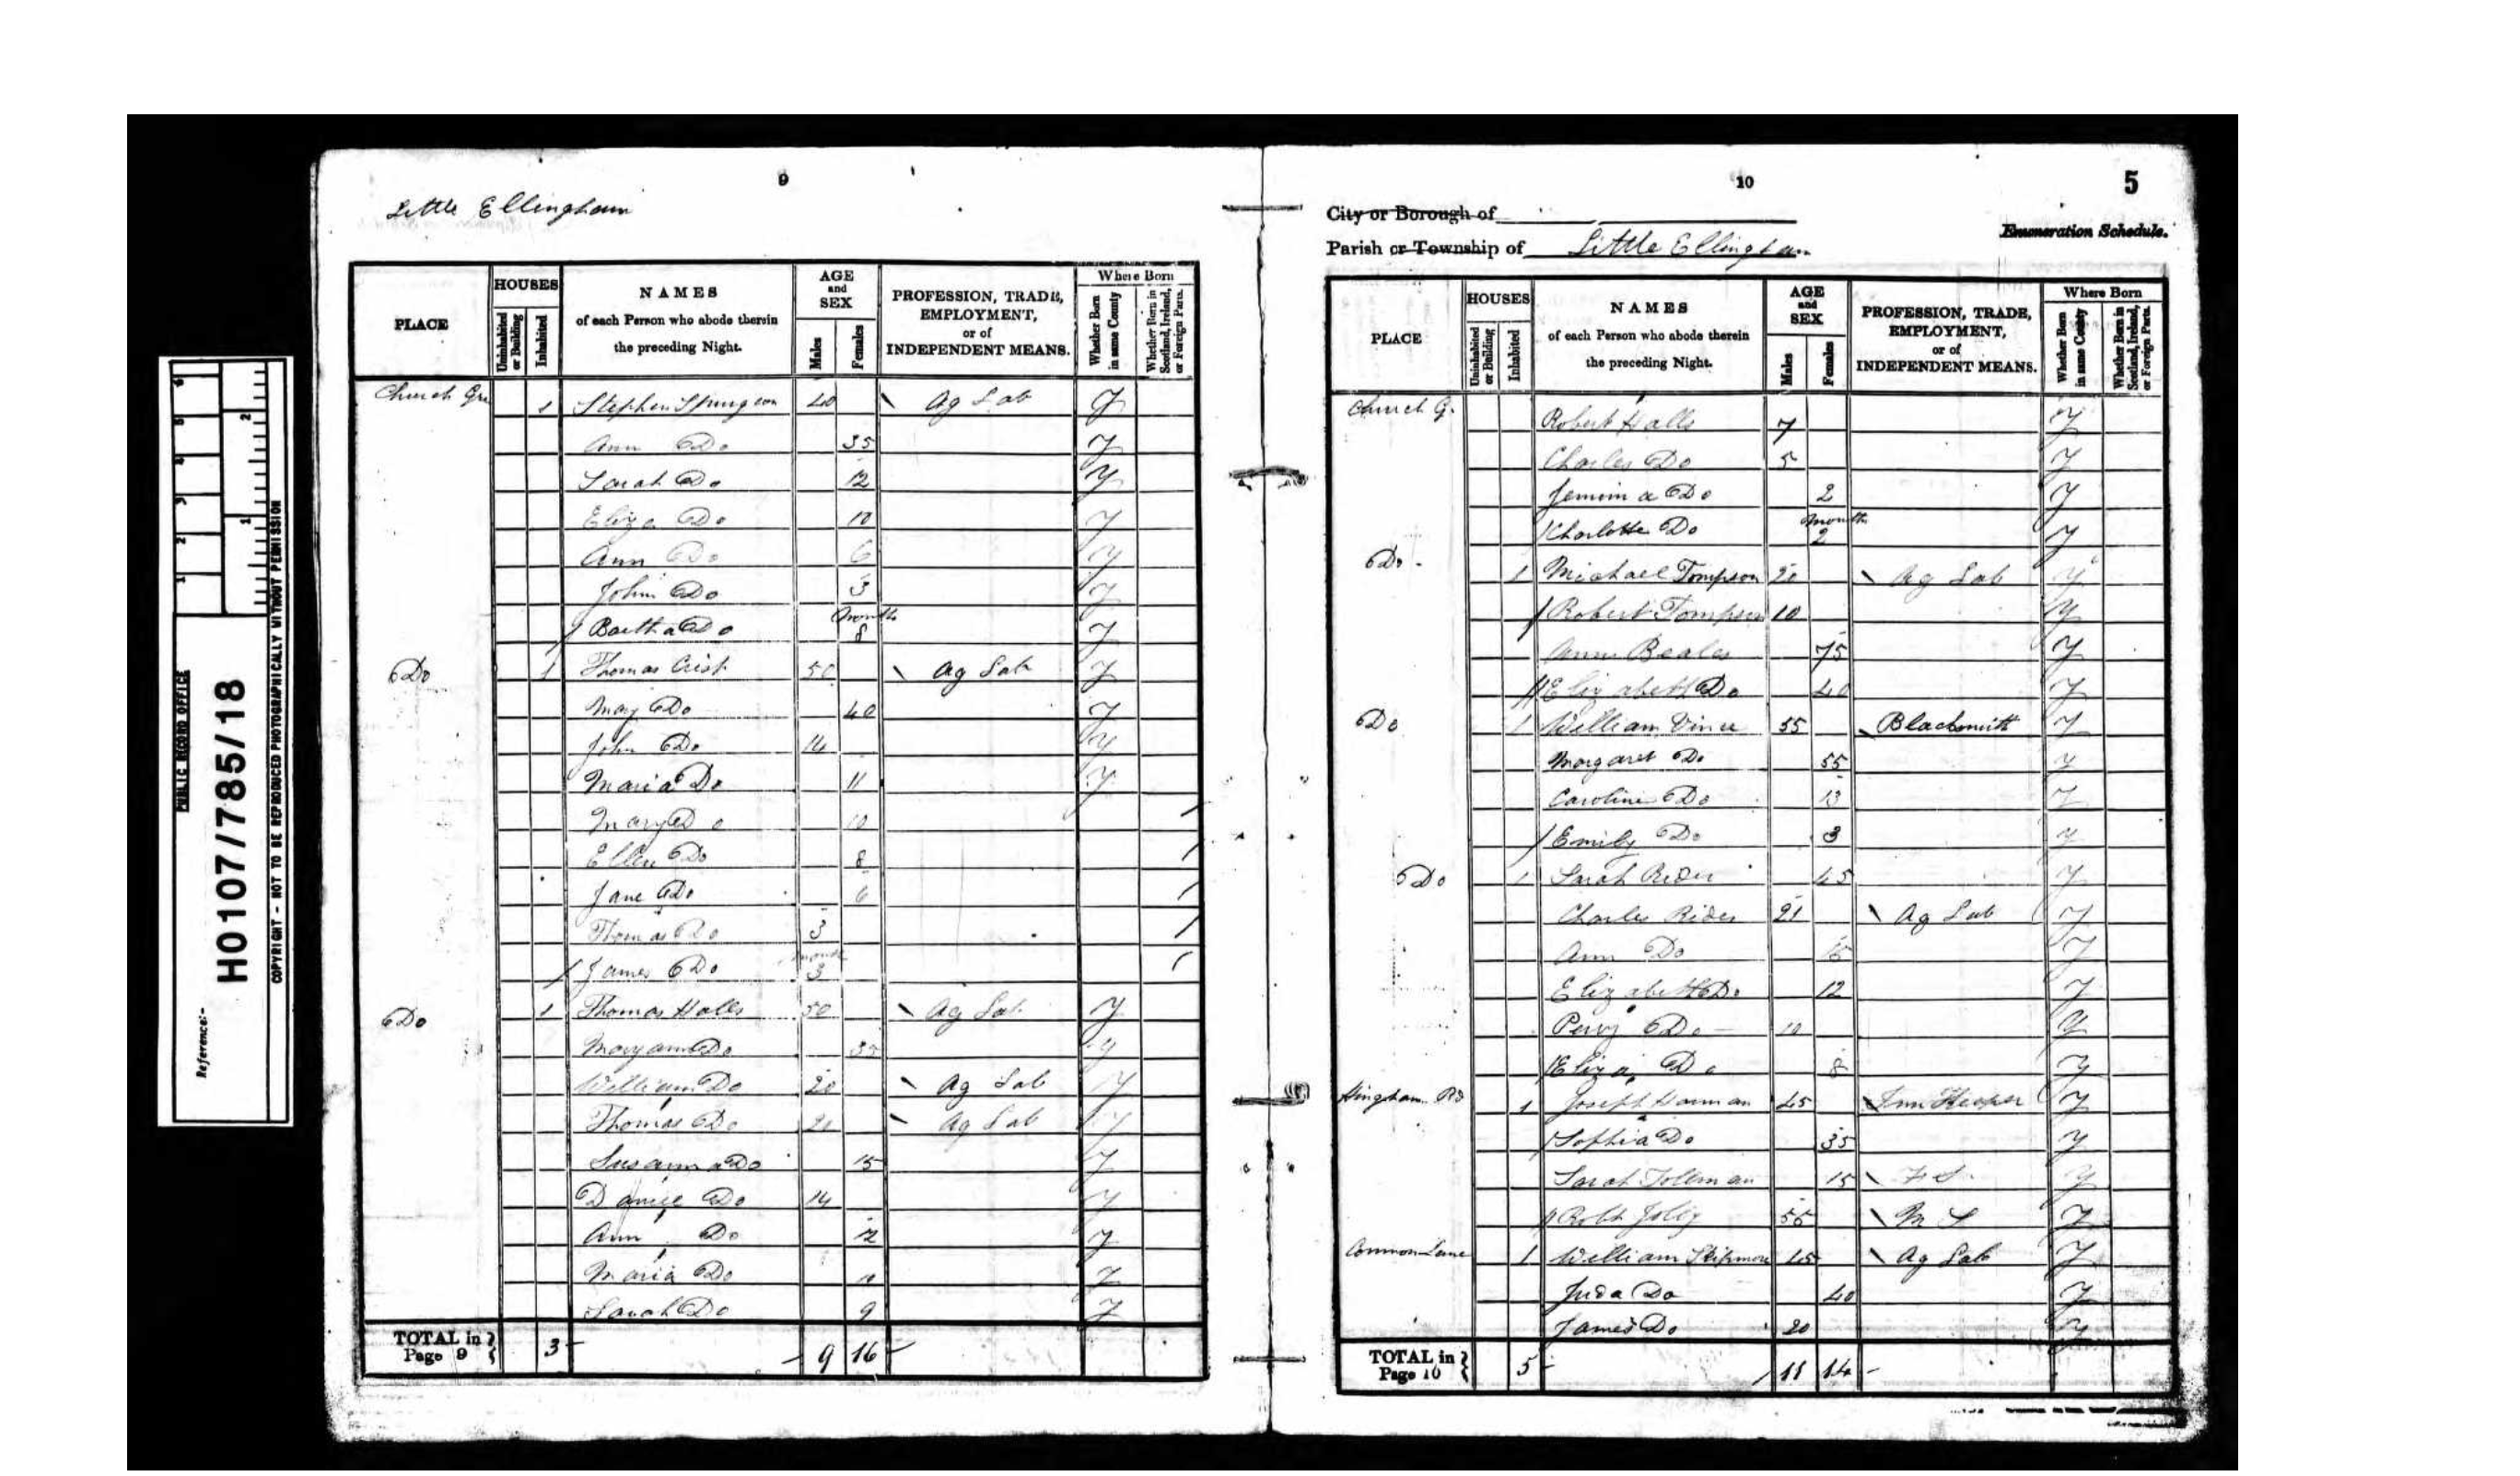 PUBLIC RECORD OFFICE
Reference:-
HO107/785/18
COPYRIGHT - NOT TO BE REPRODUCED PHOTOGRAPHICALLY WITHOUT PERMISSION
1 2 3 4 5 6
1 2
9
Little Ellingham
PLACE
HOUSES
Uninhabited or Building
Inhabited
NAMES
of each Person who abode therein
the preceding Night.
AGE
and
SEX
Males
Females
PROFESSION, TRADE,
EMPLOYMENT,
or of
INDEPENDENT MEANS.
Where Born
Whether Born in same County
Whether Born in Scotland, Ireland, or Foreign Parts.
Church Grn 1 Stephen Spurgeon 40 Ag Lab Y
Ann Do 35 Y
Sarah Do 12 Y
Eliza Do 10 Y
Ann Do 6 Y
John Do 3 Y
Baetha Do months 8 Y
Do 1 Thomas Crisp 50 Ag Lab Y
May Do 40 Y
John Do 14 Y
Maria Do 11 Y
Mary Do 10
Ellen Do 8
Jane Do 6
Thomas Do 3
James Do months 3
Do 1 Thomas Halls 50 Ag Lab Y
Maryann Do 35 Y
William Do 20 Ag Lab Y
Thomas Do 20 Ag Lab Y
Susanna Do 15 Y
Do 14 Y
Ann Do 12 Y
Maria Do 10 Y
Sarah Do 9 Y
TOTAL in
Page 9 3 9 16
10
5
City or Borough of
Parish or Township of Little Ellingham
Enumeration Schedule.
PLACE
HOUSES
Uninhabited or Building
Inhabited
NAMES
of each Person who abode therein
the preceding Night.
AGE
and
SEX
Males
Females
PROFESSION, TRADE,
EMPLOYMENT,
or of
INDEPENDENT MEANS.
Where Born
Whether Born in same County
Whether Born in Scotland, Ireland, or Foreign Parts.
Church G. Robert Halls 7 Y
Charles Do 5 Y
Jemima Do 2 Y
Charlotte Do months 2 Y
Do 1 Michael Tompson 20 Ag Lab Y
Robert Tompson 10 Y
Ann Beales 75 Y
Elizabeth Do 40 Y
Do 1 William Vince 55 Blacksmith Y
Margaret Do 55 Y
Caroline Do 13 Y
Emily Do 3 Y
Do 1 Sarah Rider 45 Y
Charles Rider 21 Ag Lab Y
Ann Do 15 Y
Elizabeth Do 12 Y
Percy Do 10 Y
Eliza Do 8 Y
Hingham Rd 1 Joseph Harman 45 Inn Keeper Y
Sophia Do 35 Y
Sarah Tollman 15 F S Y
Robt Jolly 55 M S Y
Common Lane 1 William Skipmore 45 Ag Lab Y
Juda Do 40 Y
James Do 20 Y
TOTAL in
Page 10 5 11 14